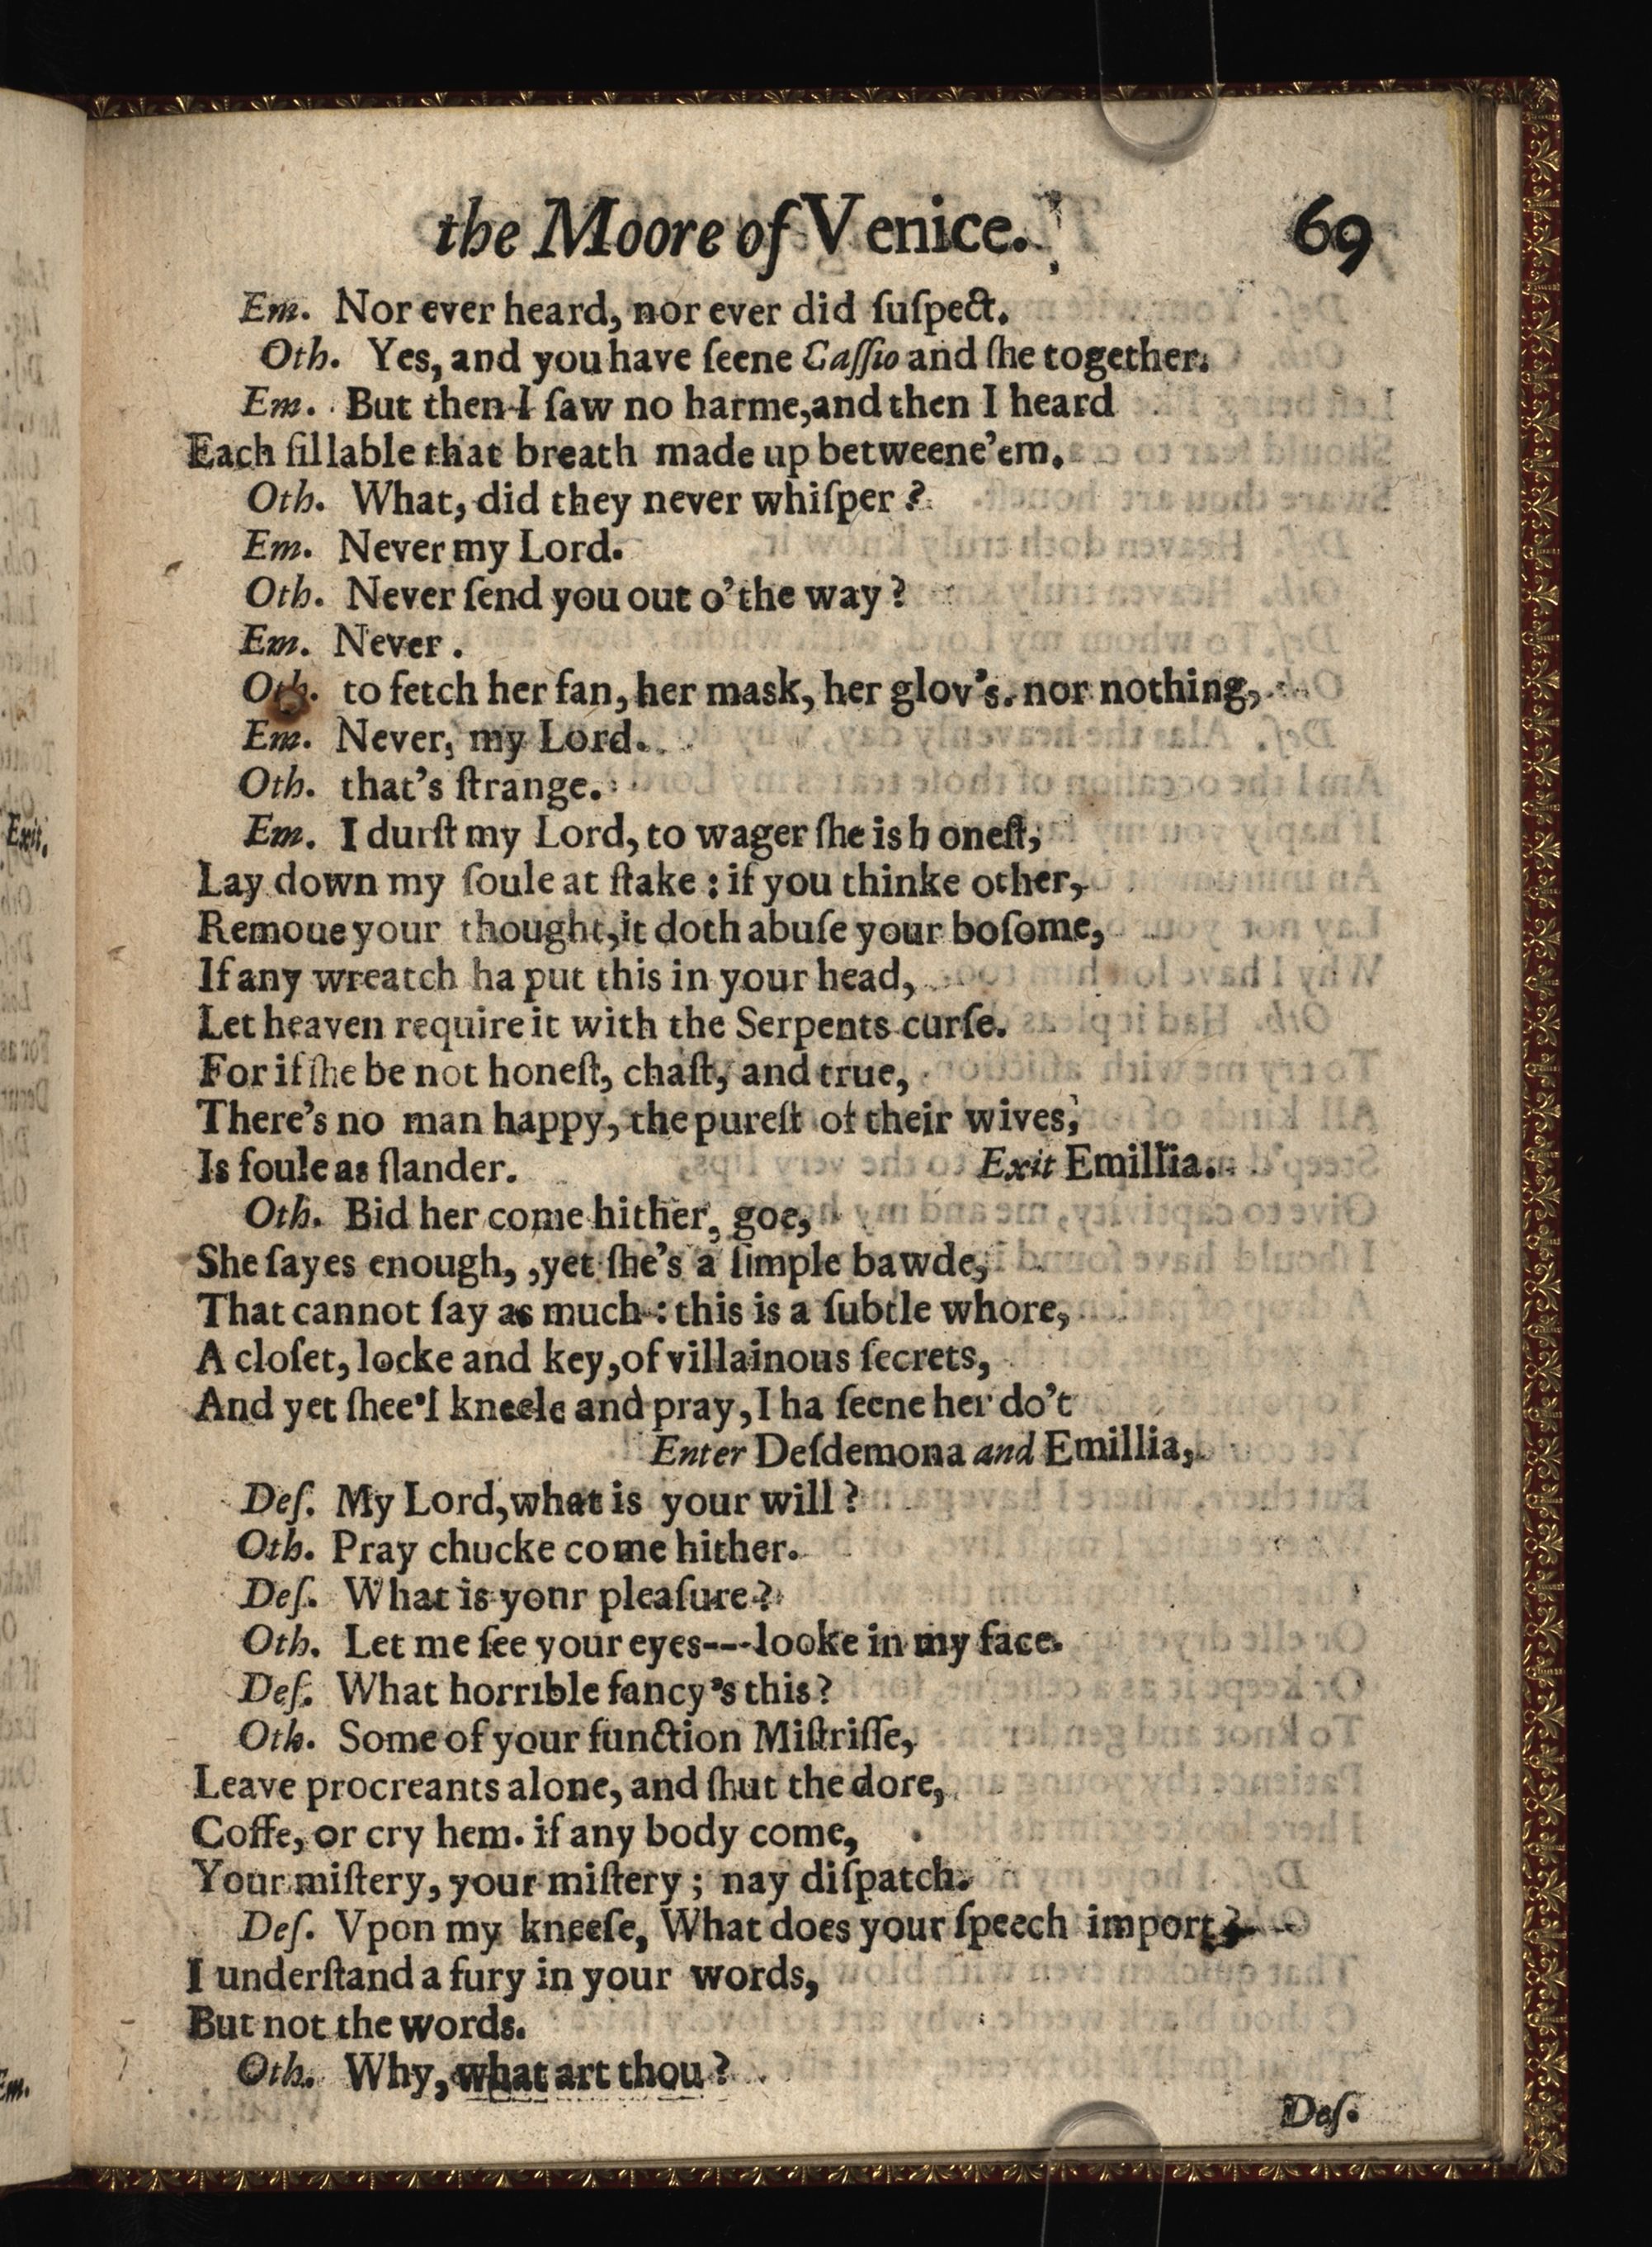 the Moore of Venice. 69
Em. Nor ever heard, nor ever did ſuſpect.
Oth. Yes, and you have ſeene Caſſio and ſhe together.
Em. But then I ſaw no harme,and then I heard
Each ſillable that breath made up betweene'em.
Oth. What, did they never whiſper ?
Em. Never my Lord.
Oth. Never ſend you out o'the way ?
Em. Never .
Oth. to fetch her fan, her mask, her glov's. nor nothing,
Em. Never, my Lord.
Oth. that's ſtrange.
Em. I durſt my Lord, to wager ſhe is h oneſt,
Lay down my ſoule at ſtake : if you thinke other,
Remoue your thought,it doth abuſe your boſome,
If any wreatch ha put this in your head,
Let heaven require it with the Serpents curſe.
For if ſhe be not honeſt, chaſt, and true,
There's no man happy, the pureſt of their wives,
Is foule as ſlander. Exit Emillia.
Oth. Bid her come hither, goe,
She ſayes enough, ,yet ſhe's a ſimple bawde,
That cannot ſay as much : this is a ſubtle whore,
A cloſet, locke and key,of villainous ſecrets,
And yet ſhee'l kneele and pray, I ha ſeene her do't
Enter Deſdemona and Emillia,
Deſ. My Lord,what is your will ?
Oth. Pray chucke come hither.
Deſ. What is yonr pleaſure ?
Oth. Let me ſee your eyes---looke in my face.
Deſ. What horrible fancy's this ?
Oth. Some of your function Miſtriſſe,
Leave procreants alone, and ſhut the dore,
Coffe, or cry hem. if any body come,
Your miſtery, your miſtery ; nay diſpatch.
Deſ. Vpon my kneeſe, What does your ſpeech import?
I underſtand a fury in your words,
But not the words.
Oth. Why, what art thou ?
Deſ.